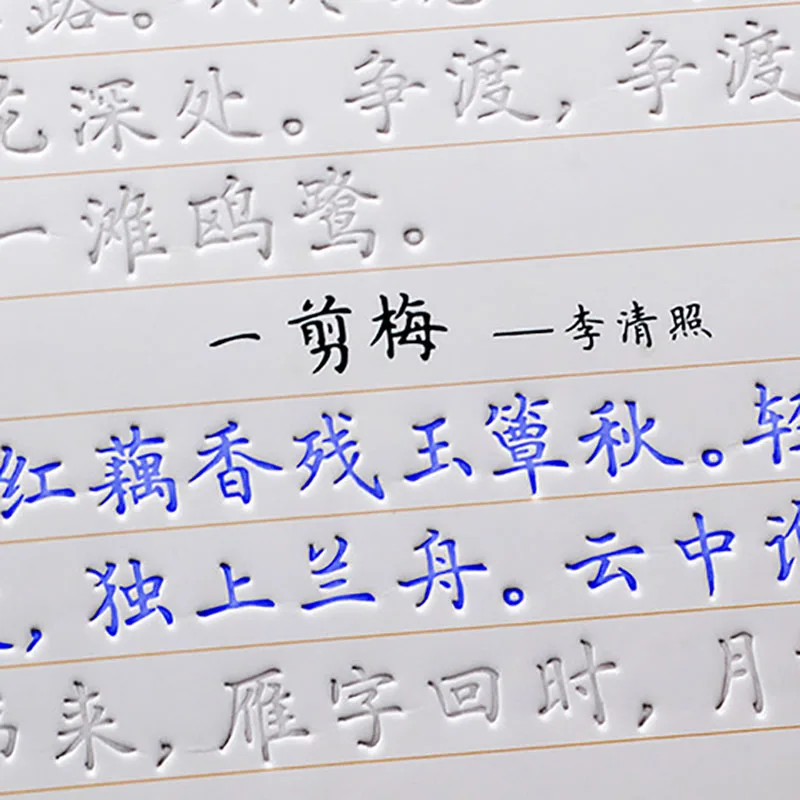 深处。争渡，争渡
一滩鸥鹭。
一剪梅 —李清照
红藕香残玉簟秋。轻
，独上兰舟。云中
来，雁字回时，月